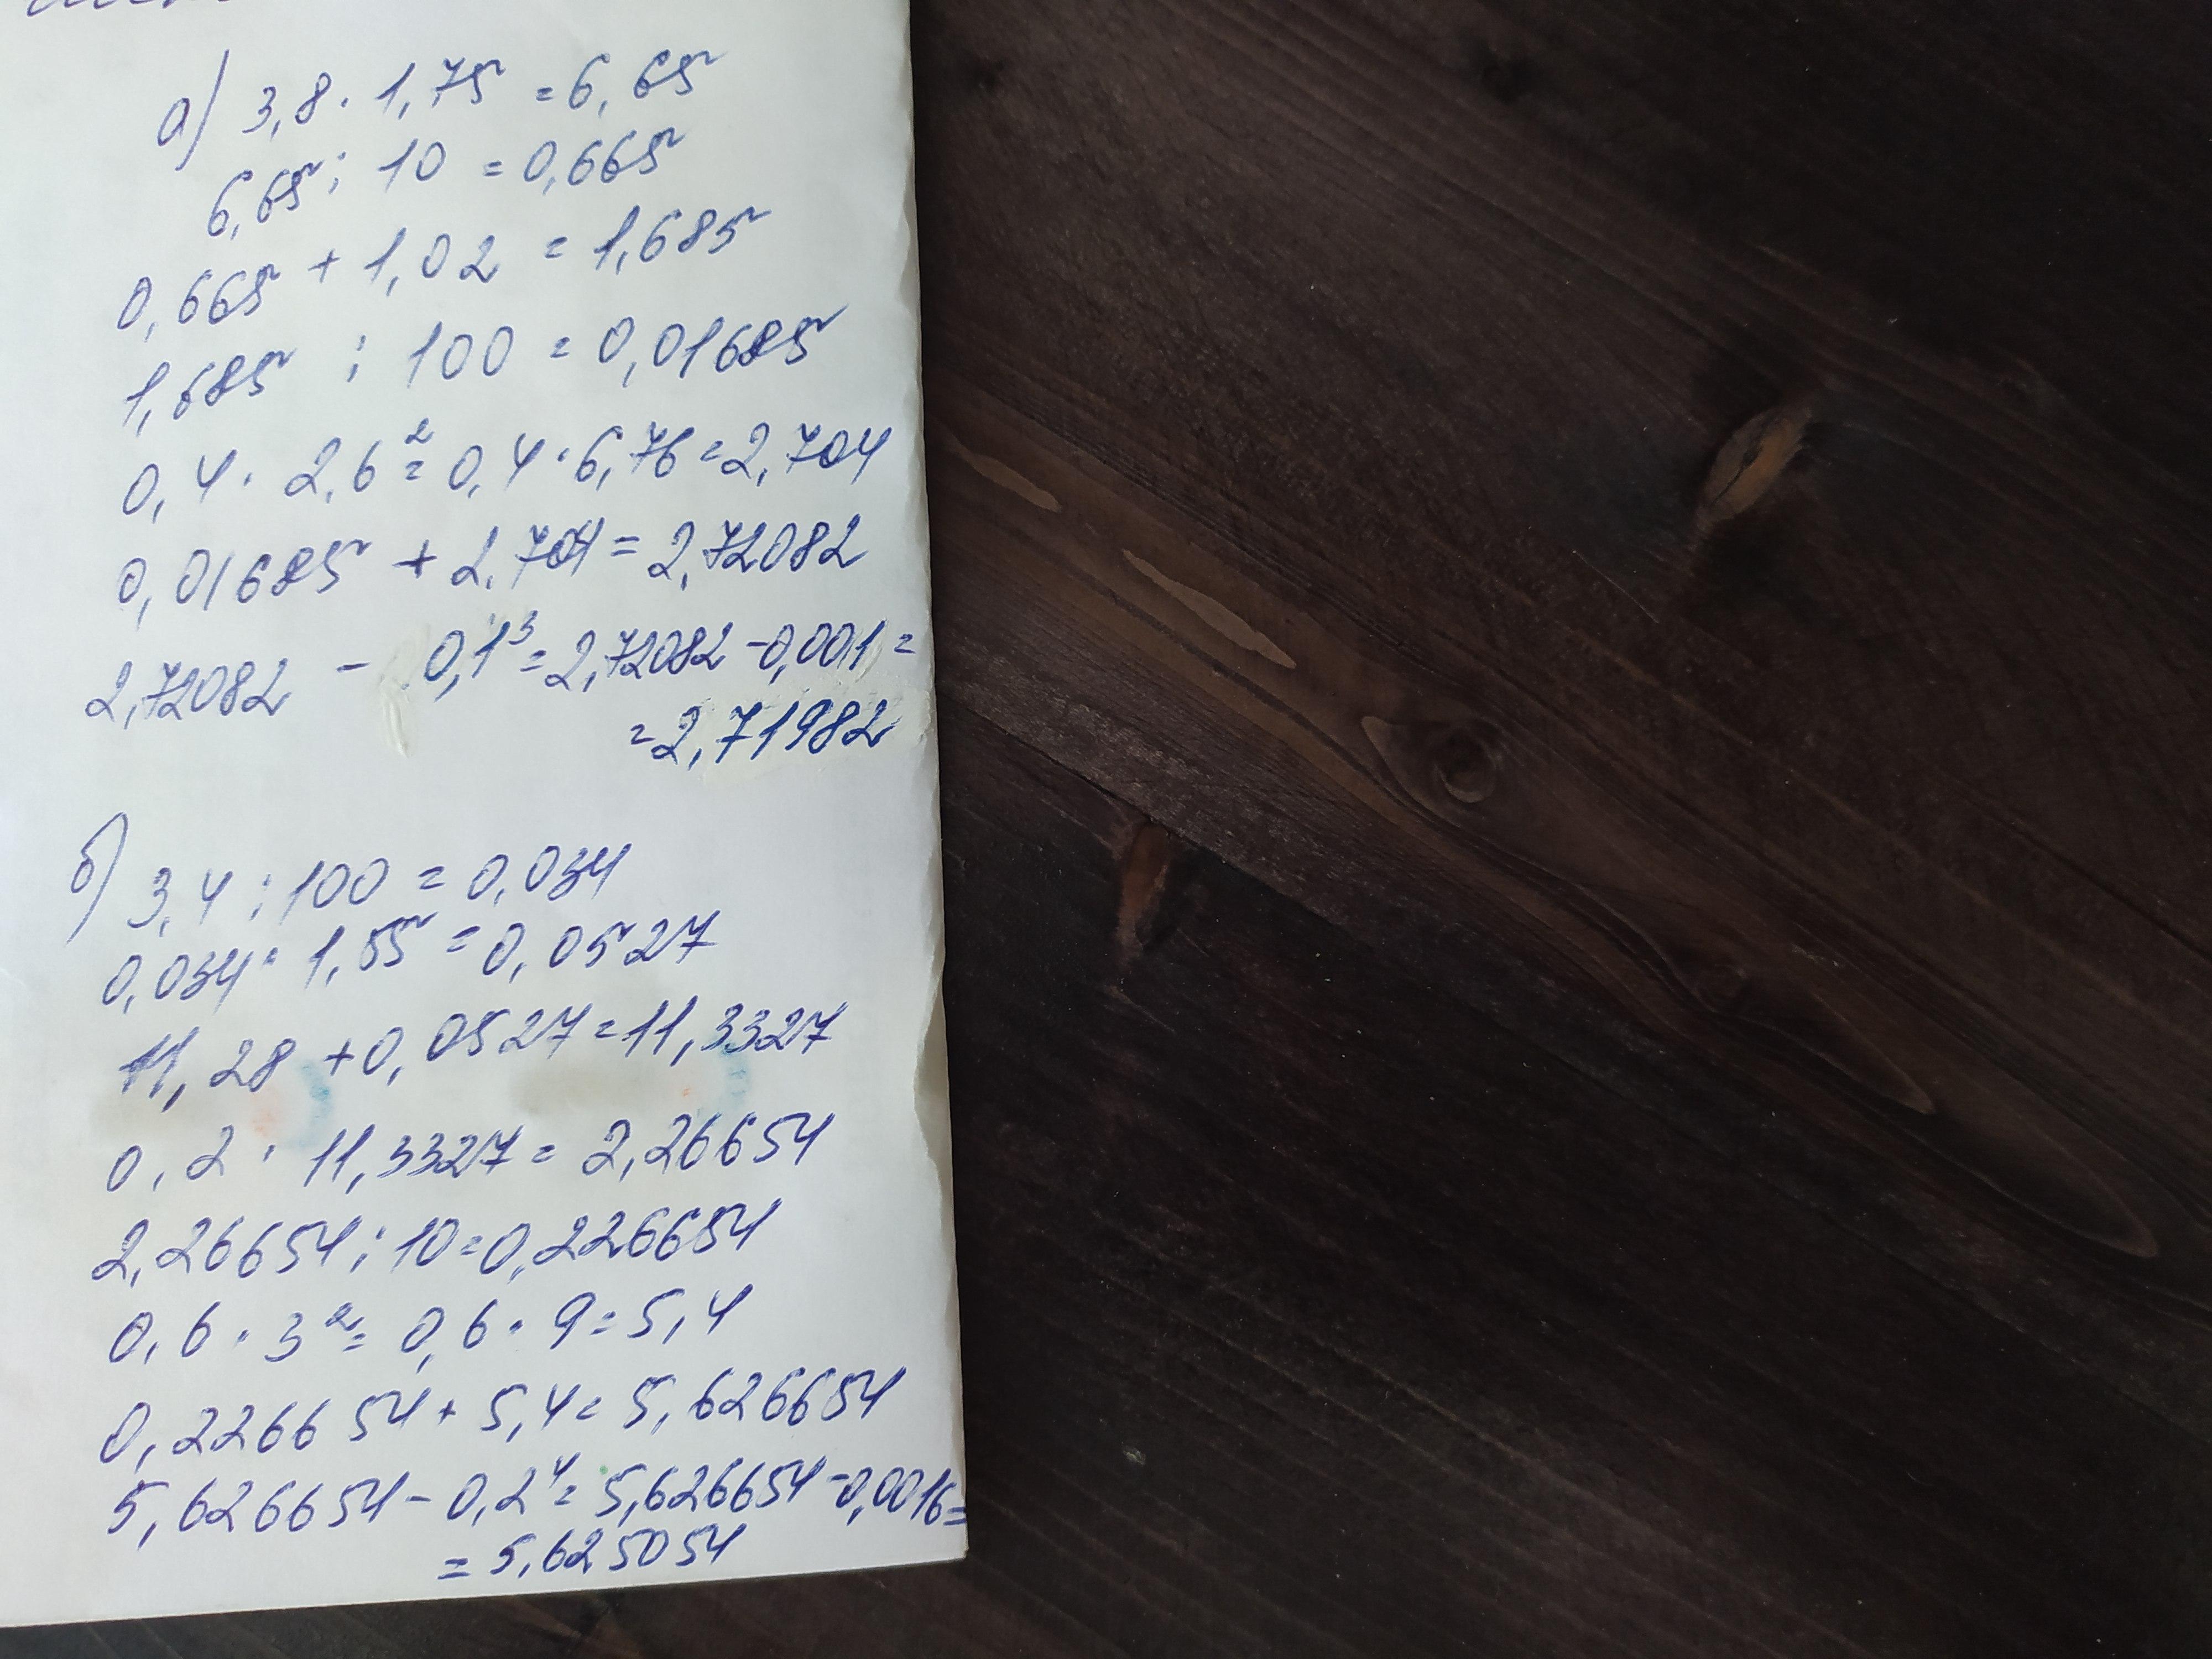 а) 3,8 · 1,75 = 6,65
6,65 : 10 = 0,665
0,665 + 1,02 = 1,685
1,685 : 100 = 0,01685
0,4 · 2,6² = 0,4 · 6,76 = 2,704
0,01685 + 2,704 = 2,72082
2,72082 - 0,1³ = 2,72082 - 0,001 =
= 2,71982
б) 3,4 : 100 = 0,034
0,034 · 1,55 = 0,0527
11,28 + 0,0527 = 11,3327
0,2 · 11,3327 = 2,26654
2,26654 : 10 = 0,226654
0,6 · 3² = 0,6 · 9 = 5,4
0,226654 + 5,4 = 5,626654
5,626654 - 0,2⁴ = 5,626654 - 0,0016 =
= 5,625054